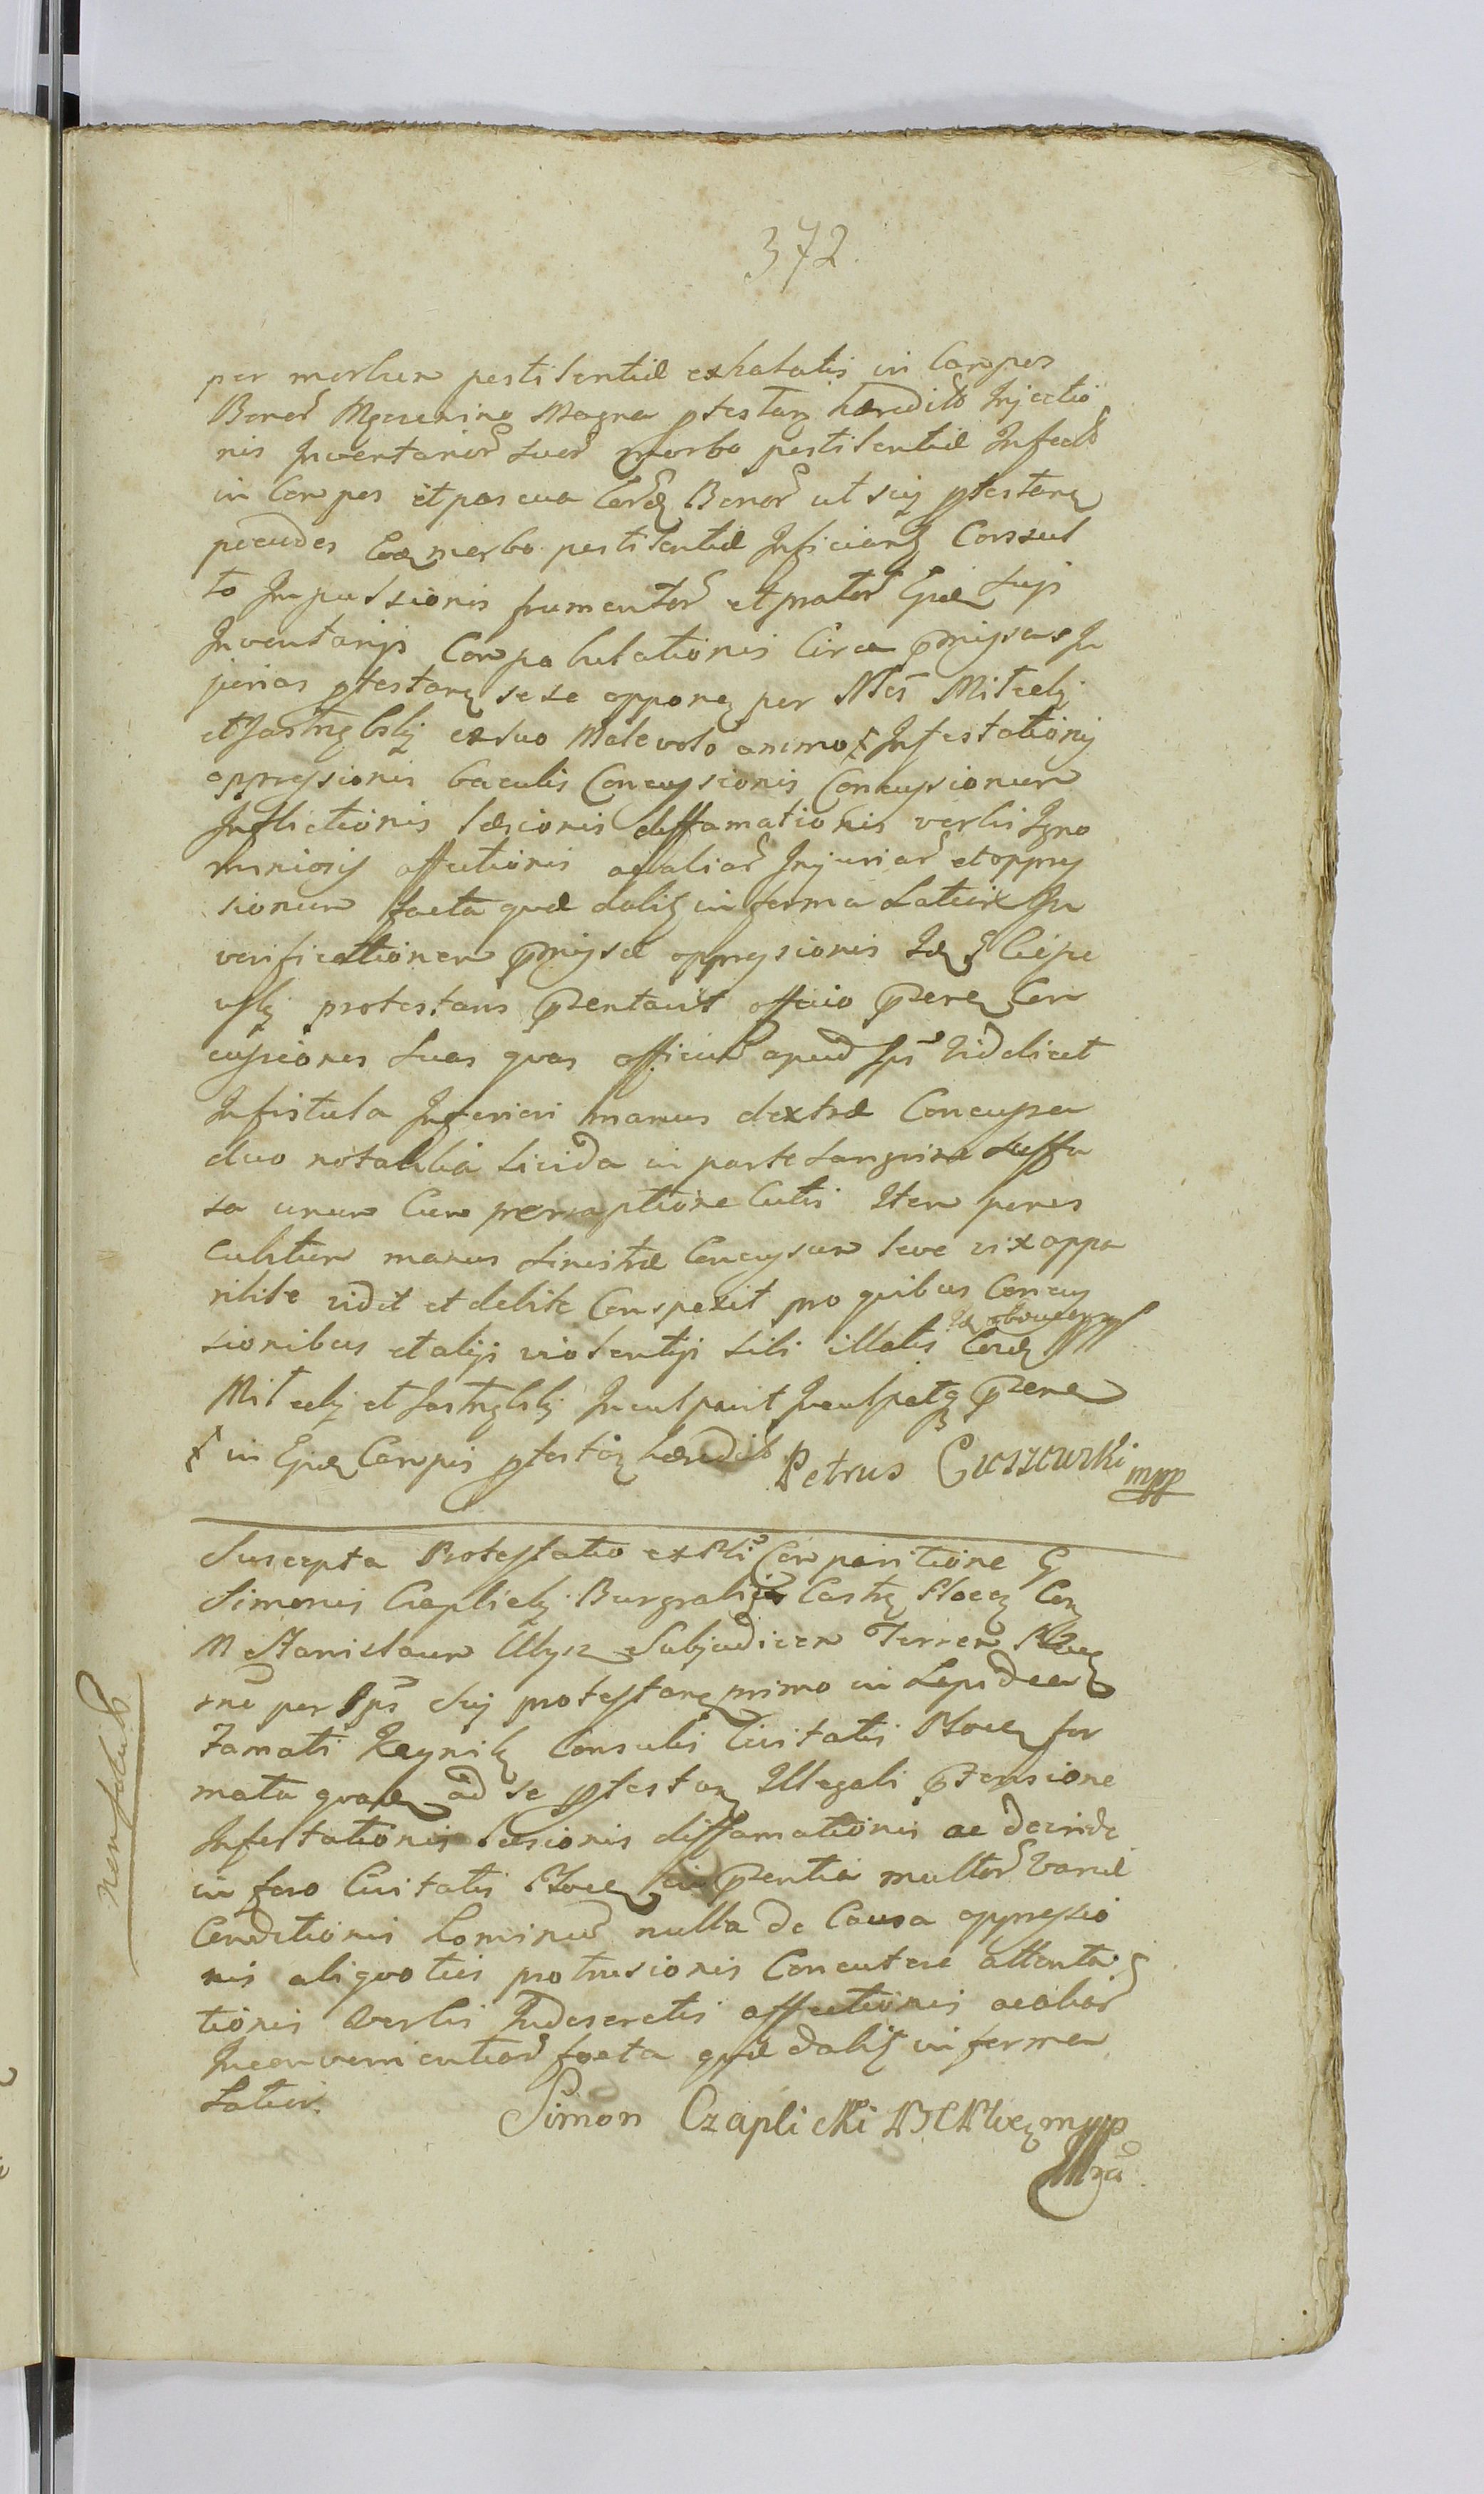 372.
per morbum pestilentiæ exhalatis in Campos
Bonor Magna ptestanq hæredit Injectio
nis Inventarior suor morbo pestilentiæ Infect
in Campos et pascua Eord Bonor ut sui ptestanq
pecudes Eoq morbo pestilentiæ Inficiant Consul
to Impulsionis frumentor et prator Ejusd suis
Inventarijs Compabulationis Circa pmissas In
jurias ptestanq sese opponen per Nles Mitcelj
et Jastrzbskj ex suo Malevolo animo Infestationis
oppressionis baculis Concussionis Concussionum
Inflictionis læsionis deffamationis verbis Igno
miniosis affectionis acaliar Injuriar et oppres
sionum facta quæ dabit in forma Latiori In
verificationem pmissæ oppressionis Id
protestans pzentavit officio pzenq Con
cussiones suas quas officium apud Ips Videlicet
In fistula Inferiori manus dextræ Concussa
duo notabilia livida in parte sanguine suffu
sa unum Cum perruptione Cutis Item penes
Cubitum manus sinistræ Concussum leve vix appa
ribile vidit et debite Conspexit pro quibus Concus
sionibus et alijs violentijs sibi illatis Eosd
Mitcelj et Jastrzbskj Inculpavit Inculpatq pzenq
in Ejusd Campis ptestanq hæredit Petrus mpp
Suscepta Protestatio ex Pli Comparitione G
Simonis Czaplickj Burgrabij Castr Plocen Con
M Stanislaum Subjudicem Terren Plocen
rne per Ips sui protestanq primo in Lapidea
Famati Consulis Civitatis Plocen for
mata quam ad se ptestanq Illegali pzensione
Infestationis læsionis diffamationis ac deinde
in foro Civitatis Plocen in pzentia multor Variæ
Conditionis hominum nulla de Causa oppressio
nis aliquoties protrusionis Concutere attenta
tionis Verbis Indiscretis affectionis acaliar
Inconvenientiar facta quæ dabit in forma
Latiori.
Simon Czaplicki mpp